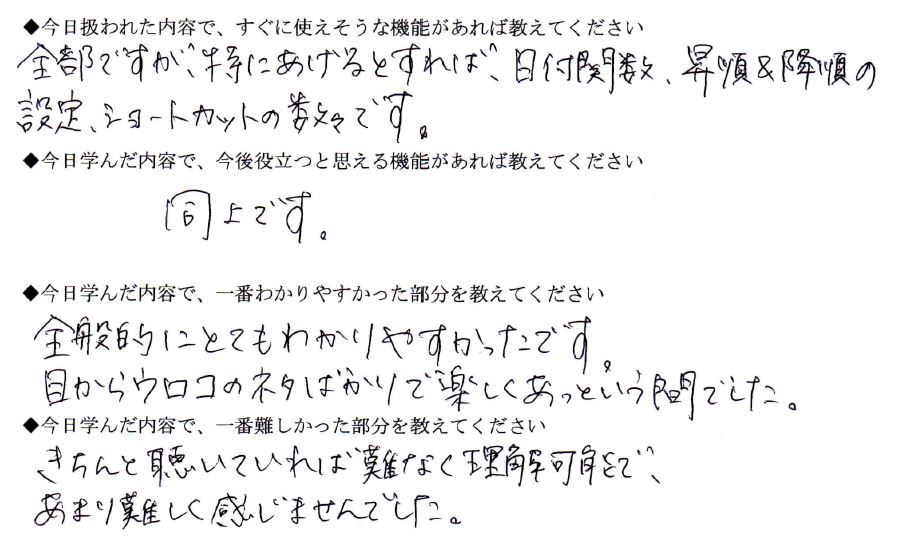 ◆今日扱われた内容で、すぐに使えそうな機能があれば教えてください
全部ですが、特にあげるとすれば、日付関数、昇順&降順の
設定、ショートカットの数々です。
◆今日学んだ内容で、今後役立つと思える機能があれば教えてください
同上です。
◆今日学んだ内容で、一番わかりやすかった部分を教えてください
全般的にとてもわかりやすかったです。
目からウロコのネタばかりで楽しくあっという間でした。
◆今日学んだ内容で、一番難しかった部分を教えてください
きちんと聴いていれば難なく理解可能で、
あまり難しく感じませんでした。